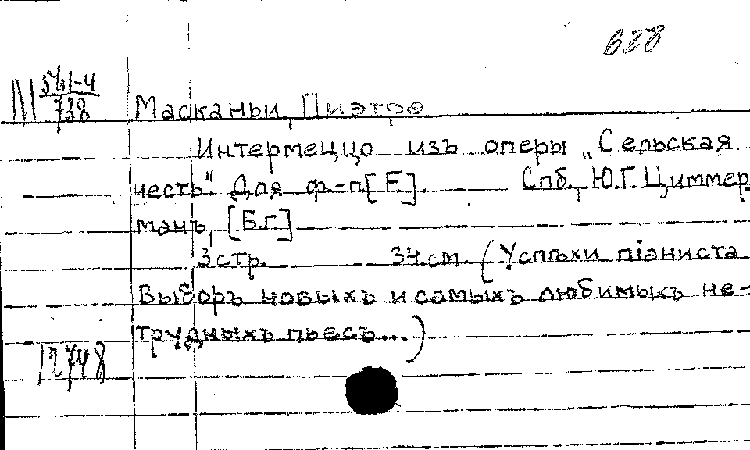 628
М 541-4
738
Масканьи, Пиэтро
Интермеццо изъ оперы „Сельская
честь“. Для ф.-п [F]. Спб, Ю.Г. Циммер
манъ, [Б.г.]
3 стр. 34 см. (Успѣхи піаниста
Выборъ новыхъ и самыхъ любимыхъ не-
трудныхъ пьесъ...)
12748